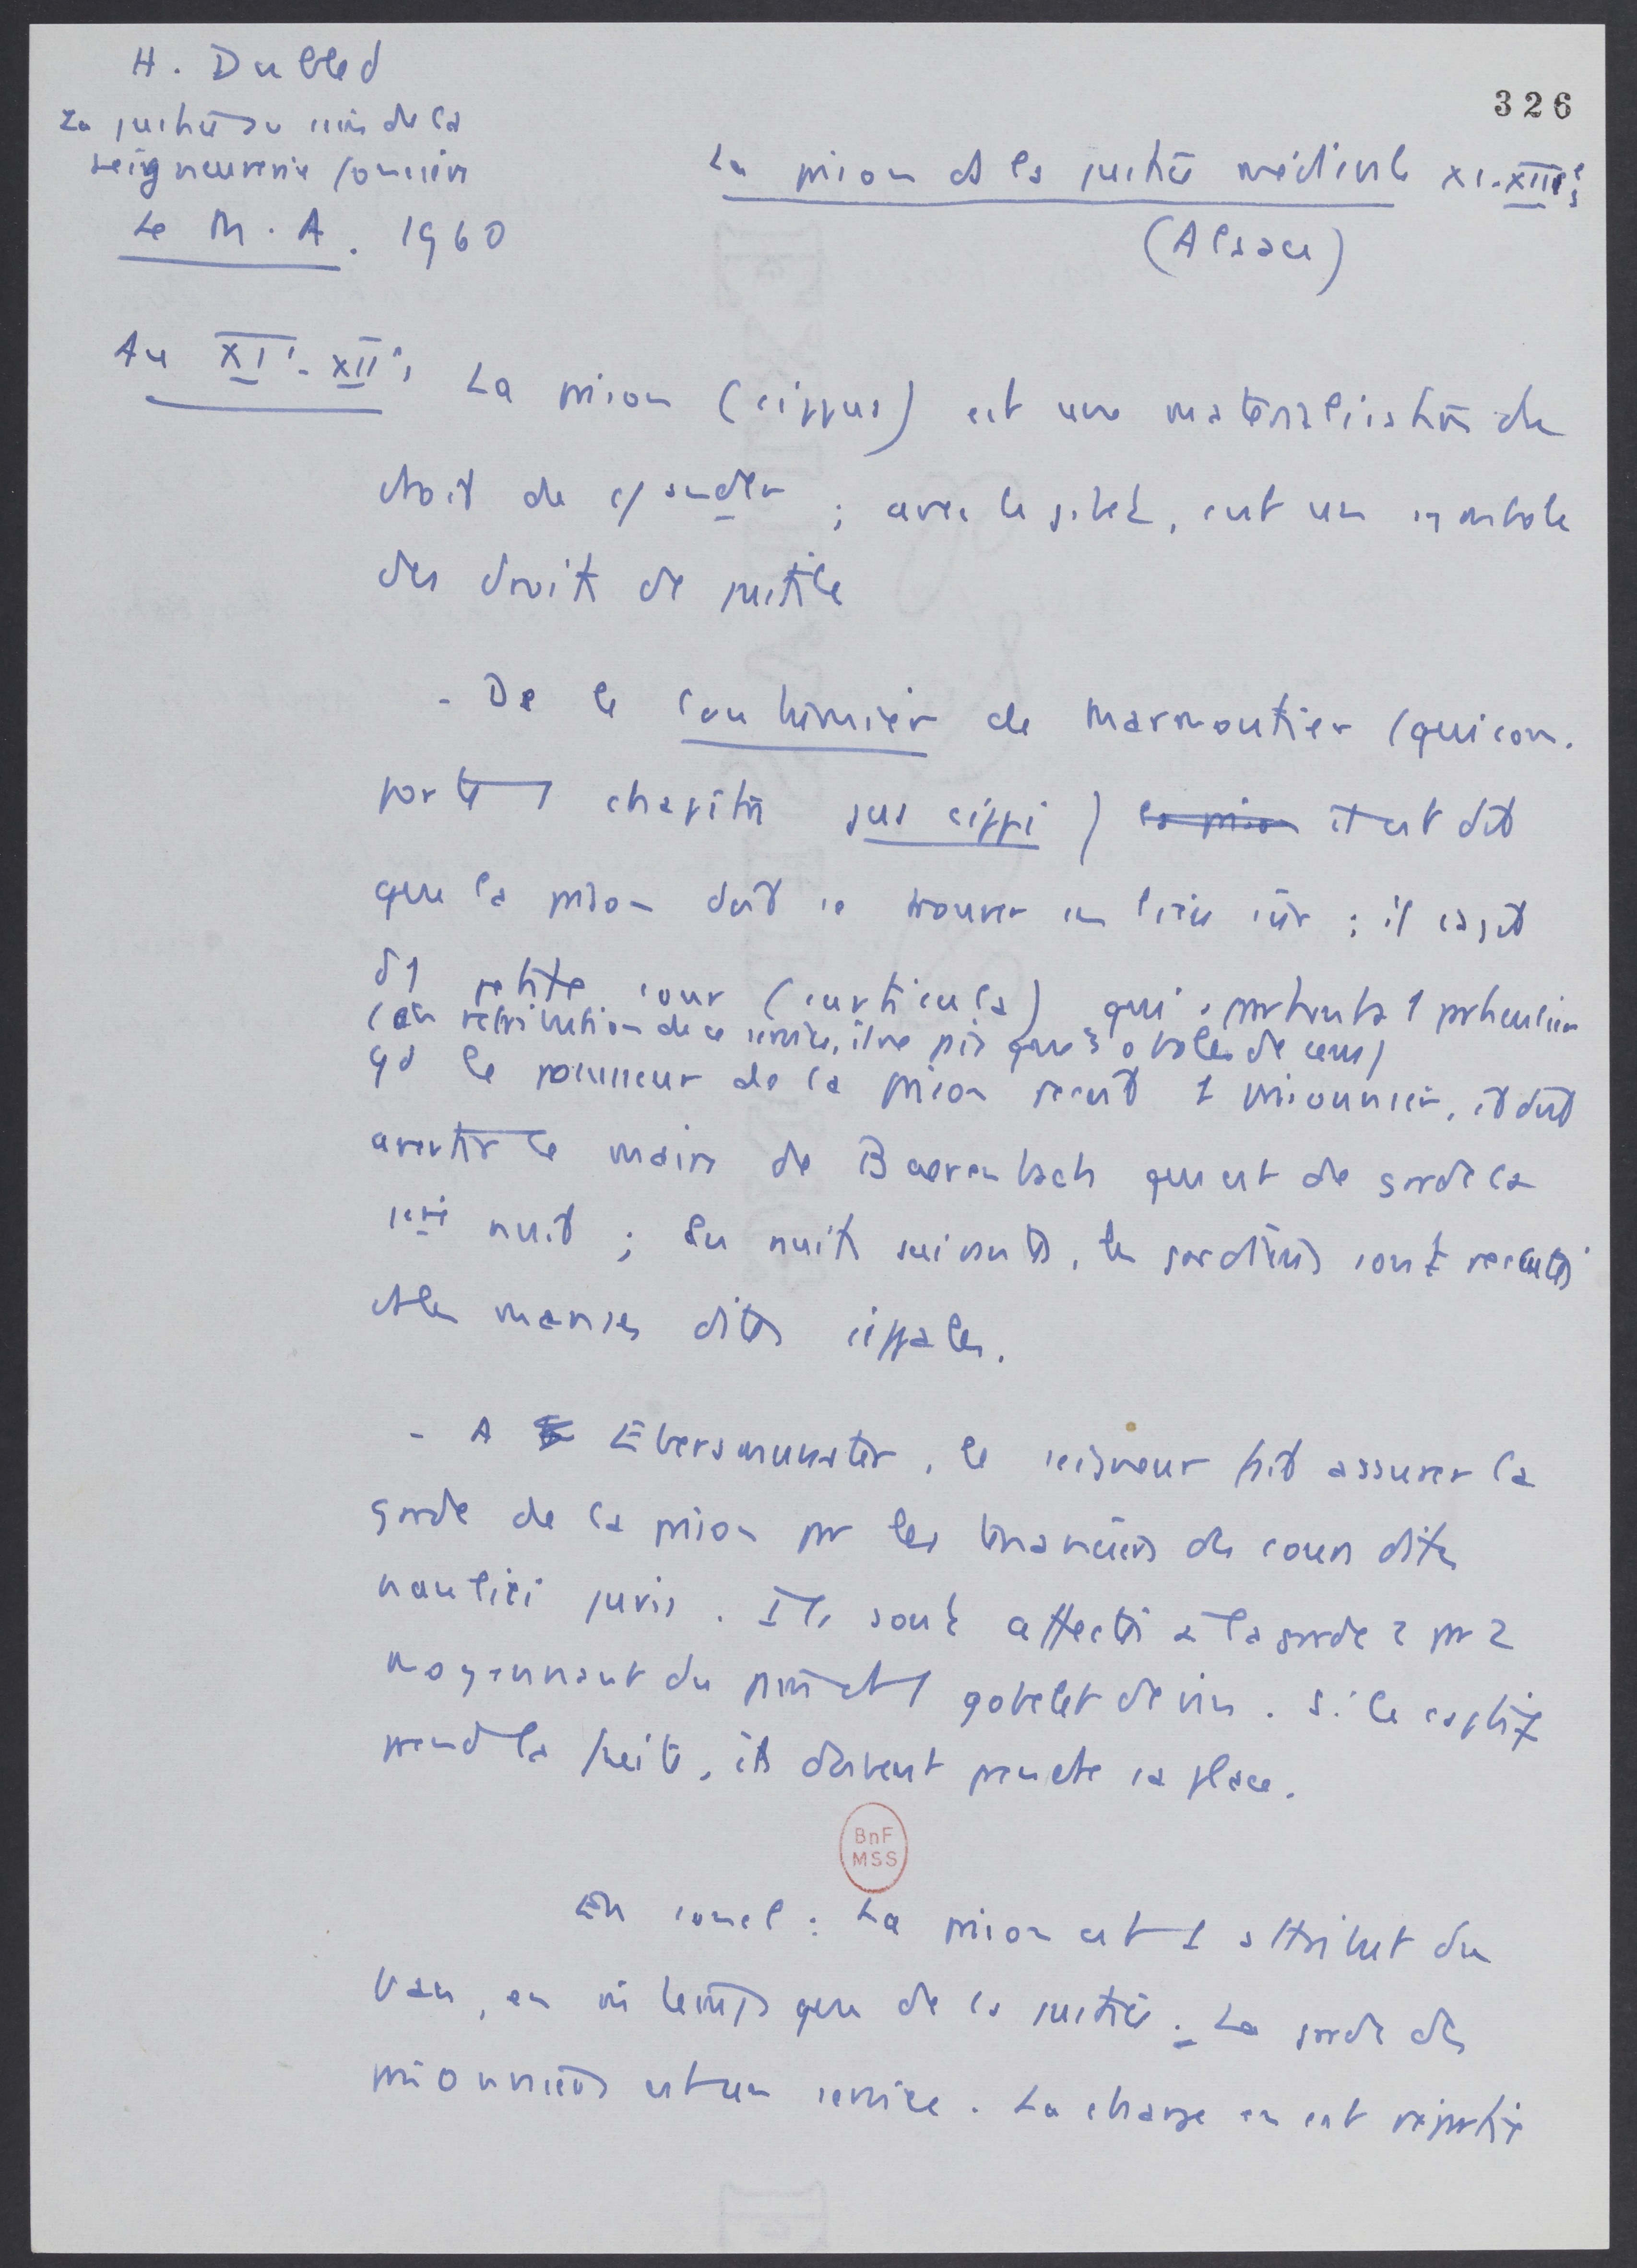 H. Dubled
La justice au sein de la
seigneurie foncière
Le M.A. 1960
326
La prison ds la justice médiévale XI-XIIIe s
(Alsace)
Au XIe-XIIe, La prison (cippus) est une matérialisation du
droit de ; avec le gibet, c'est un symbole
des droits de justice
- Ds le coutumier de Marmoutier (qui com-
porte 1 chapitre jus cippi) la prison il est dit
que la prison doit se trouver en lieu sûr ; il s'agit
d'1 petite cour (curticula) qui appartient à 1 particulier
(en rétribution de ce service, il ne paie que 3 oboles de cens)
qd le possesseur de la prison reçoit 1 prisonnier, il doit
avertir le maire de Baerenbach qui est de garde la
1ère nuit ; les nuits suivantes, les gardiens sont recrutés
ds les manses dites cippales.
- A Ebersmunster, le seigneur fait assurer la
garde de la prison par les tenanciers des cours dites
nautici juris. Ils sont affectés à la garde 2 par 2
moyennant du pain et 1 gobelet de vin. Si le captif
prend la fuite, ils doivent prendre sa place.
BnF
MSS
En concl : La prison est 1 attribut du
ban, en m temps que de la justice. La garde des
prisonniers est un service. La charge en est répartie